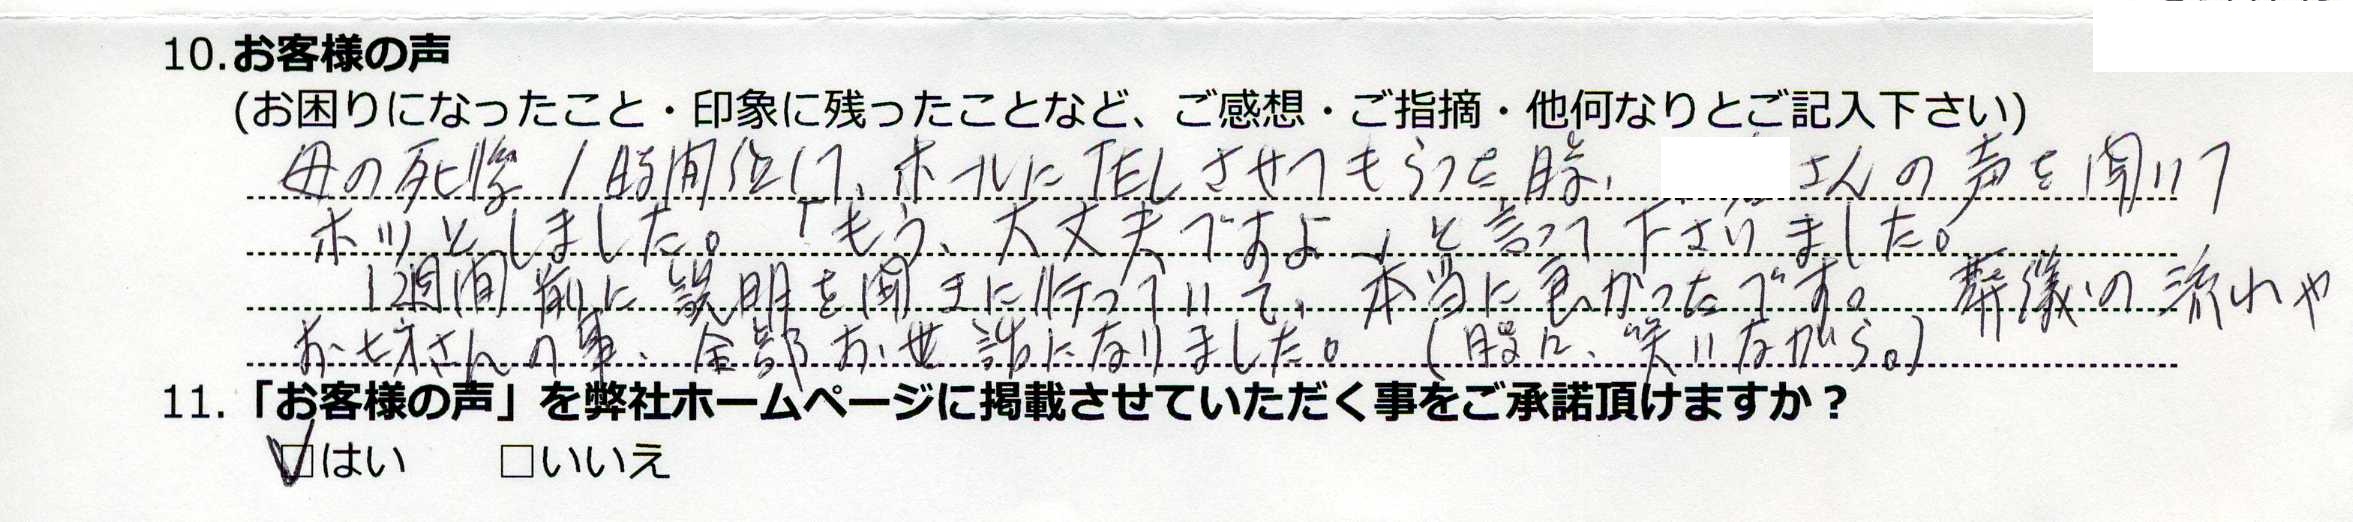 10.お客様の声
(お困りになったこと・印象に残ったことなど、ご感想・ご指摘・他何なりとご記入下さい)
母の死後1時間位して、ホールにTELさせてもらった時、 さんの声を聞いて
ホッとしました。「もう、大丈夫ですよ」と言って下さいました。
1週間前に説明を聞きに行っていて、本当に良かったです。葬儀の流れや
お坊さんの事、全部お世話になりました。(時に、笑いながら。)
11.「お客様の声」を弊社ホームページに掲載させていただく事をご承諾頂けますか？
☑はい □いいえ